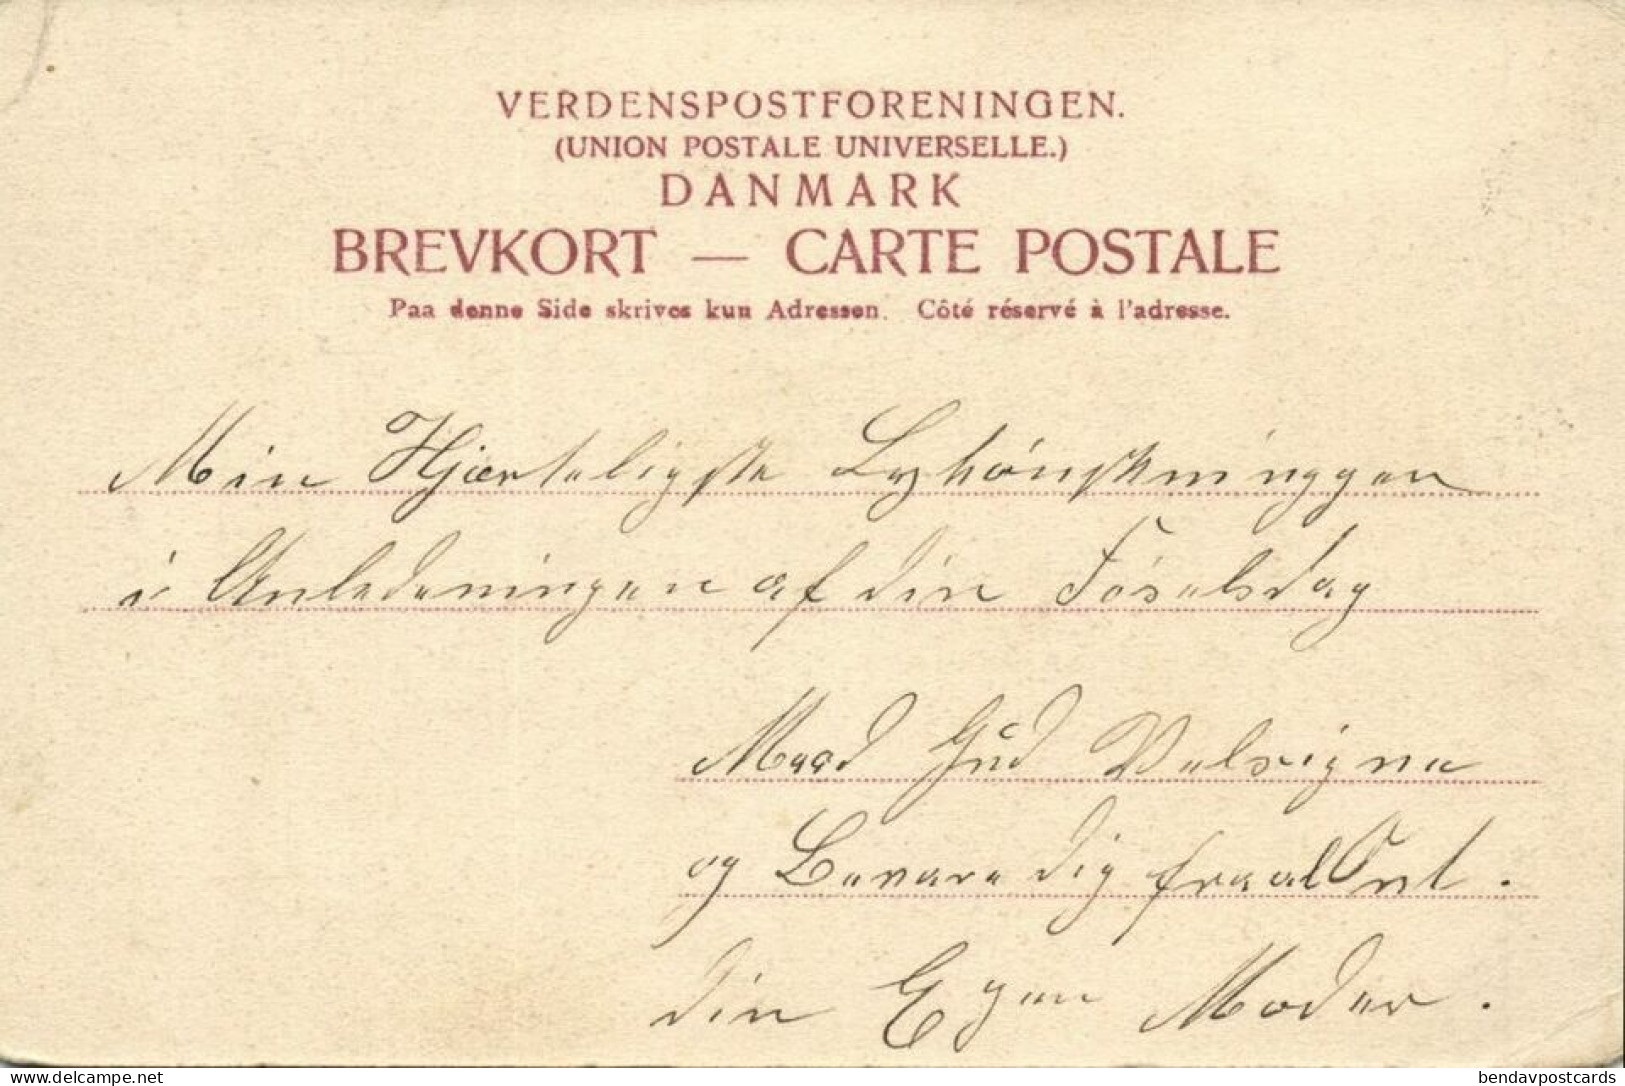 VERDENSPOSTFORENINGEN.
(UNION POSTALE UNIVERSELLE.)
DANMARK
BREVKORT — CARTE POSTALE
Paa denne Side skrives kun Adressen. Côté réservé à l'adresse.
Min Hjærteligste Lykønskninggen
i Anledeningen af din Føselsdag
Maad Gud Velsigne
og Bevare dig fra al Ont.
din Egen Moder.
www.delcampe.net
bendavpostcards